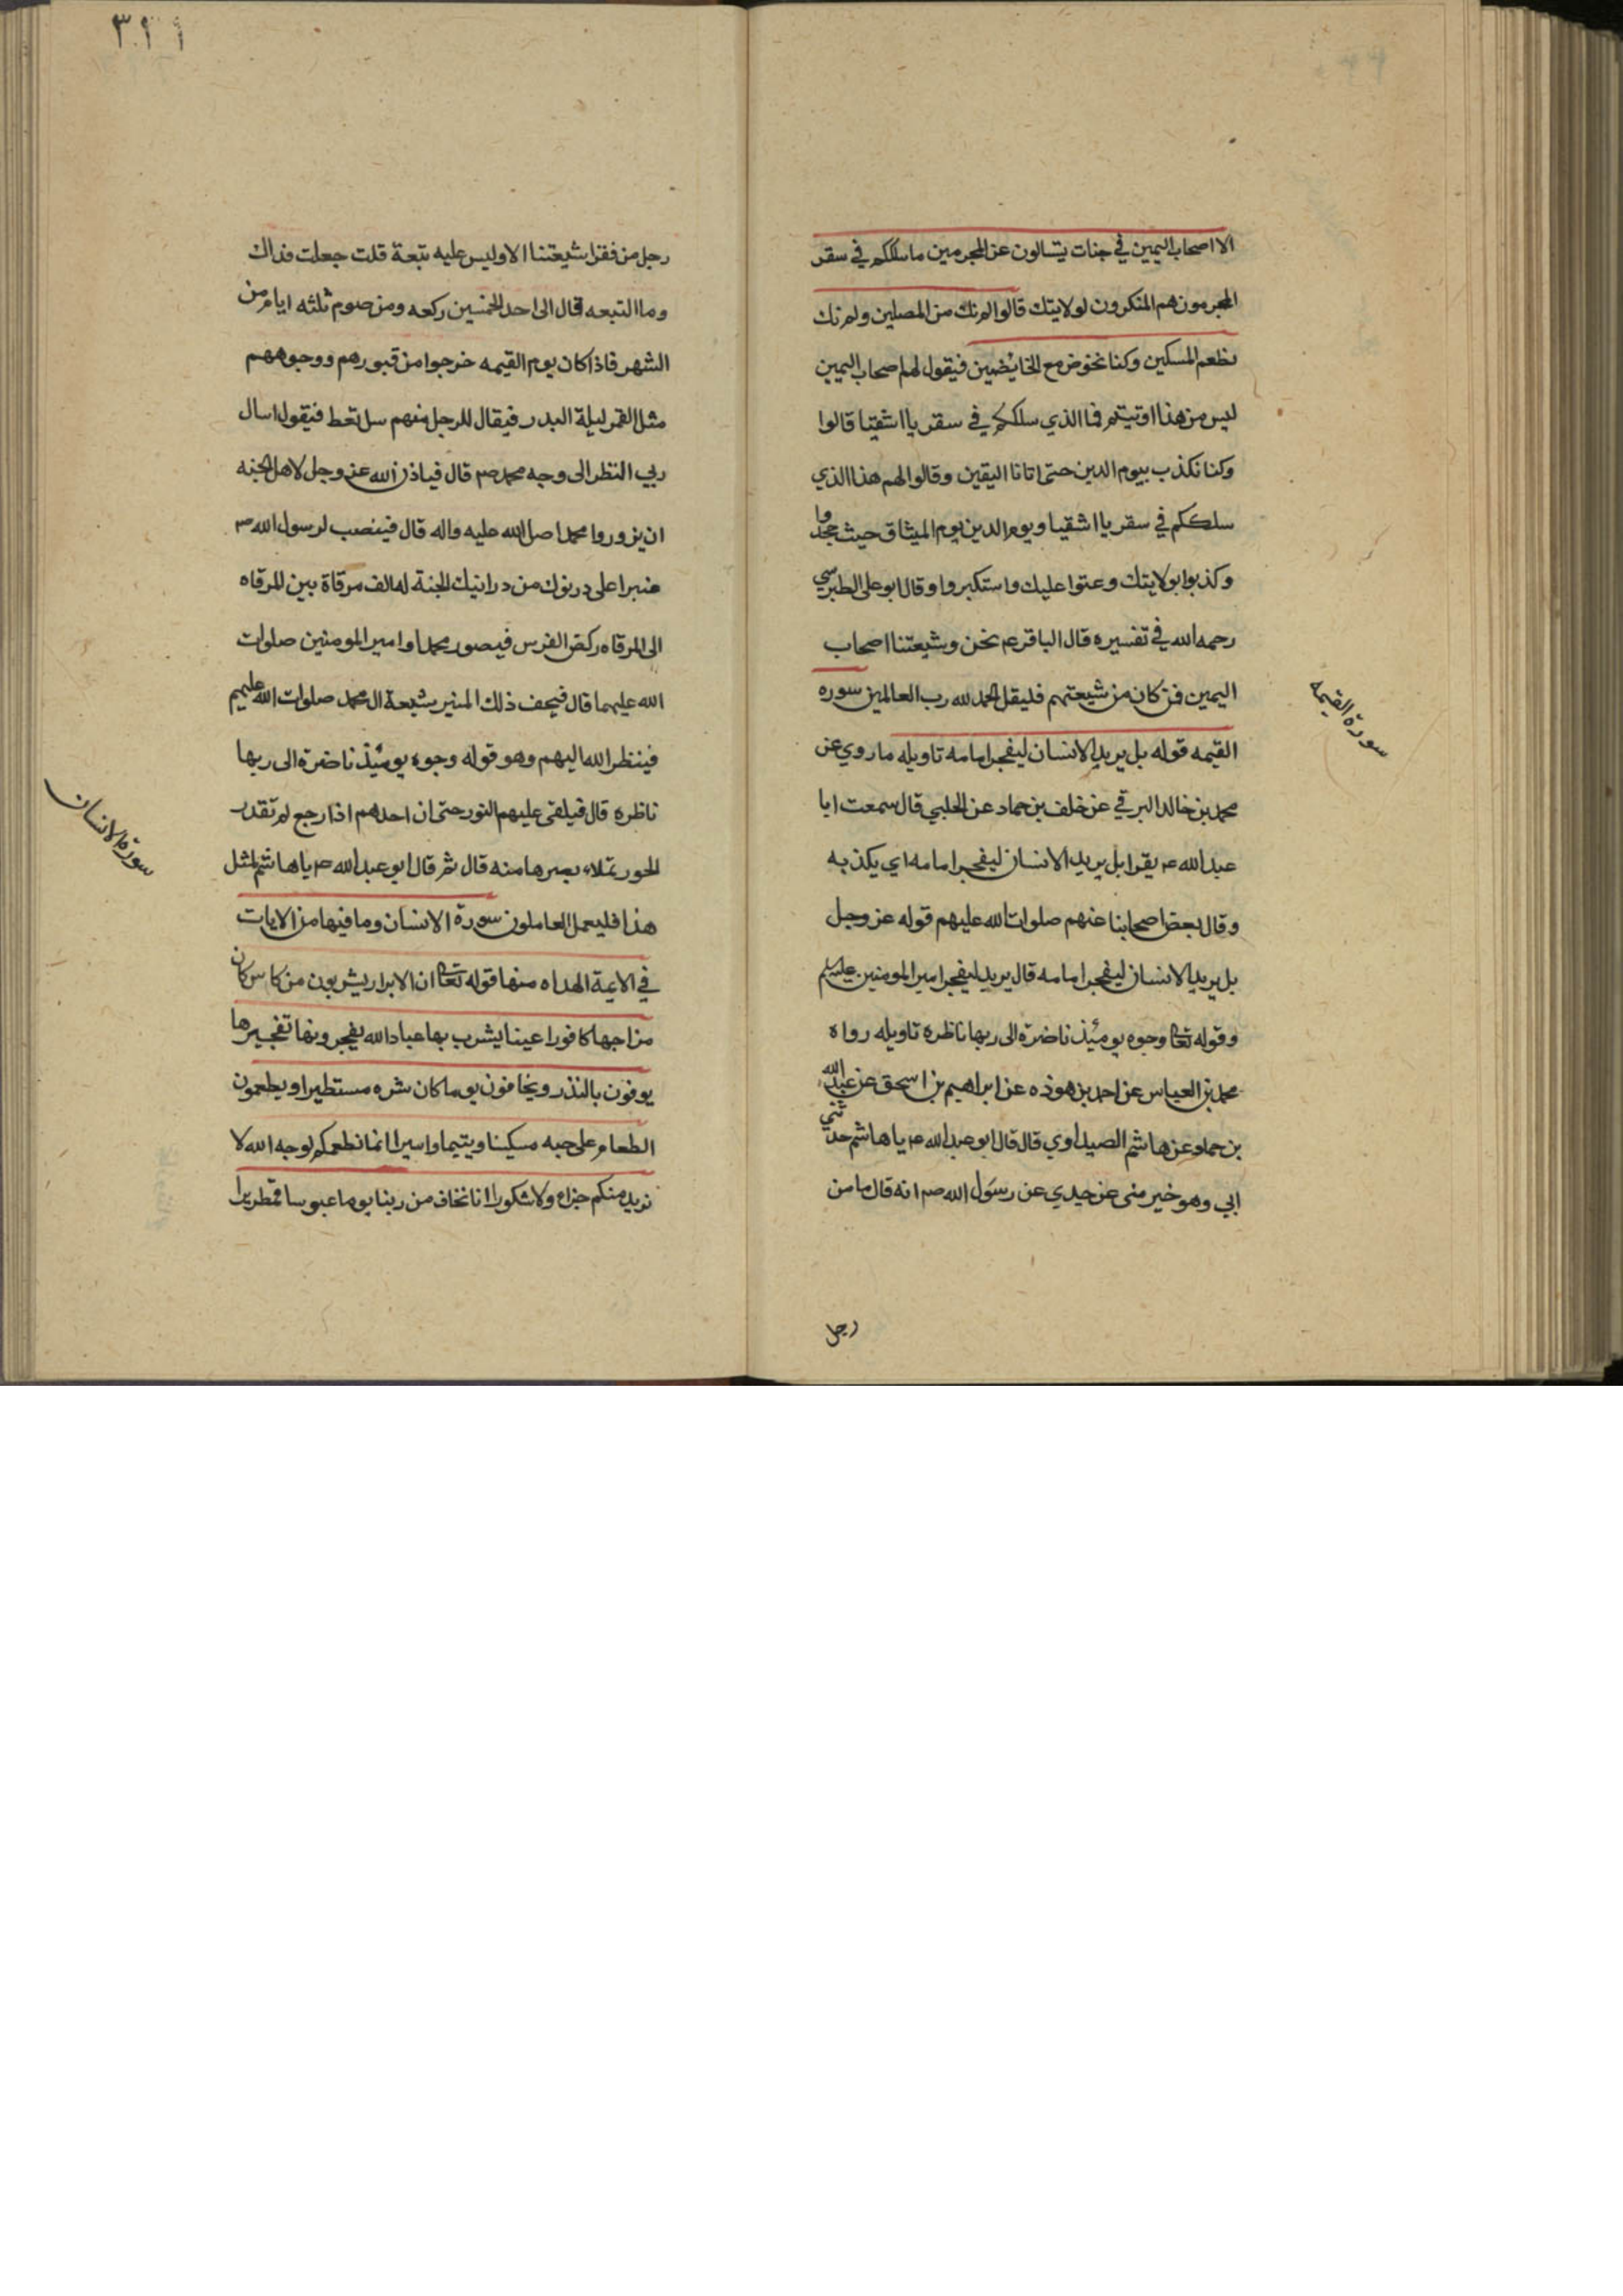 الا اصحاب اليمين في جنات يتسالون عن المجرمين ما سلككم في سقر
المجرمون هم المنكرون لولايتك قالوا لم نك من المصلين ولم نك
نطعم المسكين وكنا نخوض مع الخائضين فيقول لهم اصحاب اليمين
ليس من هذا اوتيتم فما الذي سلككم في سقر يا اشقيا قالوا
وكنا نكذب بيوم الدين حتى اتانا اليقين وقالوا لهم هذا الذي
سلككم في سقر يا اشقيا ويوم الدين يوم الميثاق حيث جحدوا
وكذبوا بولايتك وعتوا عليك واستكبروا وقال ابو علي الطبرسي
رحمه الله في تفسيره قال الباقر ع نحن وشيعتنا اصحاب
اليمين فمن كان من شيعتهم فليقل الحمد لله رب العالمين سوره
القيمه قوله بل يريد الانسان ليفجر امامه تاويله ما روي عن
محمد بن خالد البرقي عن خلف بن حماد عن الحلبي قال سمعت ابا
عبد الله ع يقرا بل يريد الانسان ليفجر امامه اي يكذبه
وقال بعض اصحابنا عنهم صلوات الله عليهم قوله عز وجل
بل يريد الانسان ليفجر امامه قال يريد ليفجر امير المومنين عليه السلم
وقوله تعا وجوه يومئذ ناضرة الى ربها ناظره تاويله رواه
محمد بن العباس عن احمد بن هوذه عن ابراهيم بن اسحق عن عبد الله
بن حماد عن هاشم الصيداوي قال قال ابو عبد الله ع يا هاشم حدثني
ابي وهو خير مني عن جدي عن رسول الله ص انه قال ما من
رجل
سورة القيمه
٣٢١
رجل من فقرا شيعتنا الا وليس عليه تبعة قلت جعلت فداك
وما التبعه قال الى احد الخمسين ركعه ومن صوم ثلثه ايام من
الشهر فاذا كان يوم القيمه خرجوا من قبورهم ووجوههم
مثل القمر ليلة البدر فيقال للرجل منهم سل تعط فيقول اسال
ربي النظر الى وجه محمد ص قال فياذن الله عز وجل لاهل الجنه
ان يزوروا محمدا صلى الله عليه واله قال فينصب لرسول الله ص
منبرا على درنوك من درانيك الجنة له الف مرقاة بين المرقاه
الى المرقاه ركض الفرس فيصور محمدا وامير المومنين صلوات
الله عليهما قال فيحف ذلك المنبر شيعة ال محمد صلوات الله عليهم
فينظر الله اليهم وهو قوله وجوه يومئذ ناضرة الى ربها
ناظره قال فيلقى عليهم النور حتى ان احدهم اذا رجع لم تقدر
الحور تملاء بصرها منه قال ثم قال ابو عبد الله ع يا هاشم لمثل
هذا فليعمل العاملون سورة الانسان وما فيها من الايات
في الايمة الهداه منها قوله تعا ان الابرار يشربون من كاس كان
مزاجها كافورا عينا يشرب بها عباد الله يفجرونها تفجيرها
يوفون بالنذر ويخافون يوما كان شره مستطيرا ويطعمون
الطعام على حبه مسكينا ويتيما واسيرا انما نطعمكم لوجه الله لا
نريد منكم جزاء ولا شكورا انا نخاف من ربنا يوما عبوسا قمطريرا
سورة الانسان